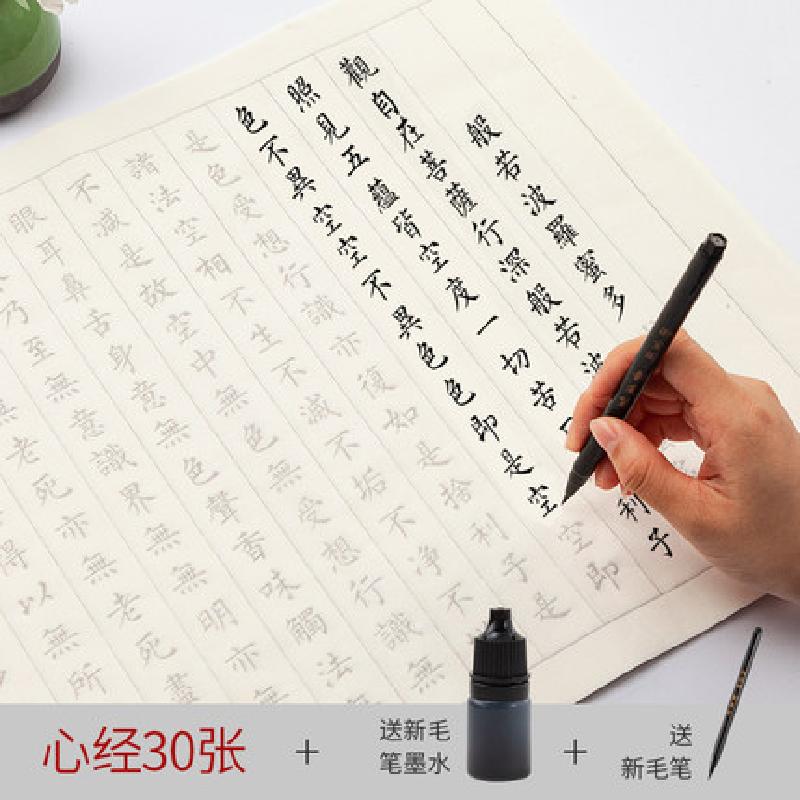 般若波羅蜜多
觀自在菩薩行深般若波
照見五蘊皆空度一切苦利子
色不異空空不異色色即是空空即
是色受想行識亦復如是捨利子是
諸法空相不生不滅不垢不淨不
不減是故空中無色無受想行識無
眼耳鼻舌身意無色聲香味觸法
乃至無意識界無無明亦
無老死亦無老死盡
得以無所
心经30张
+
送新毛
笔墨水
+
送
新毛笔